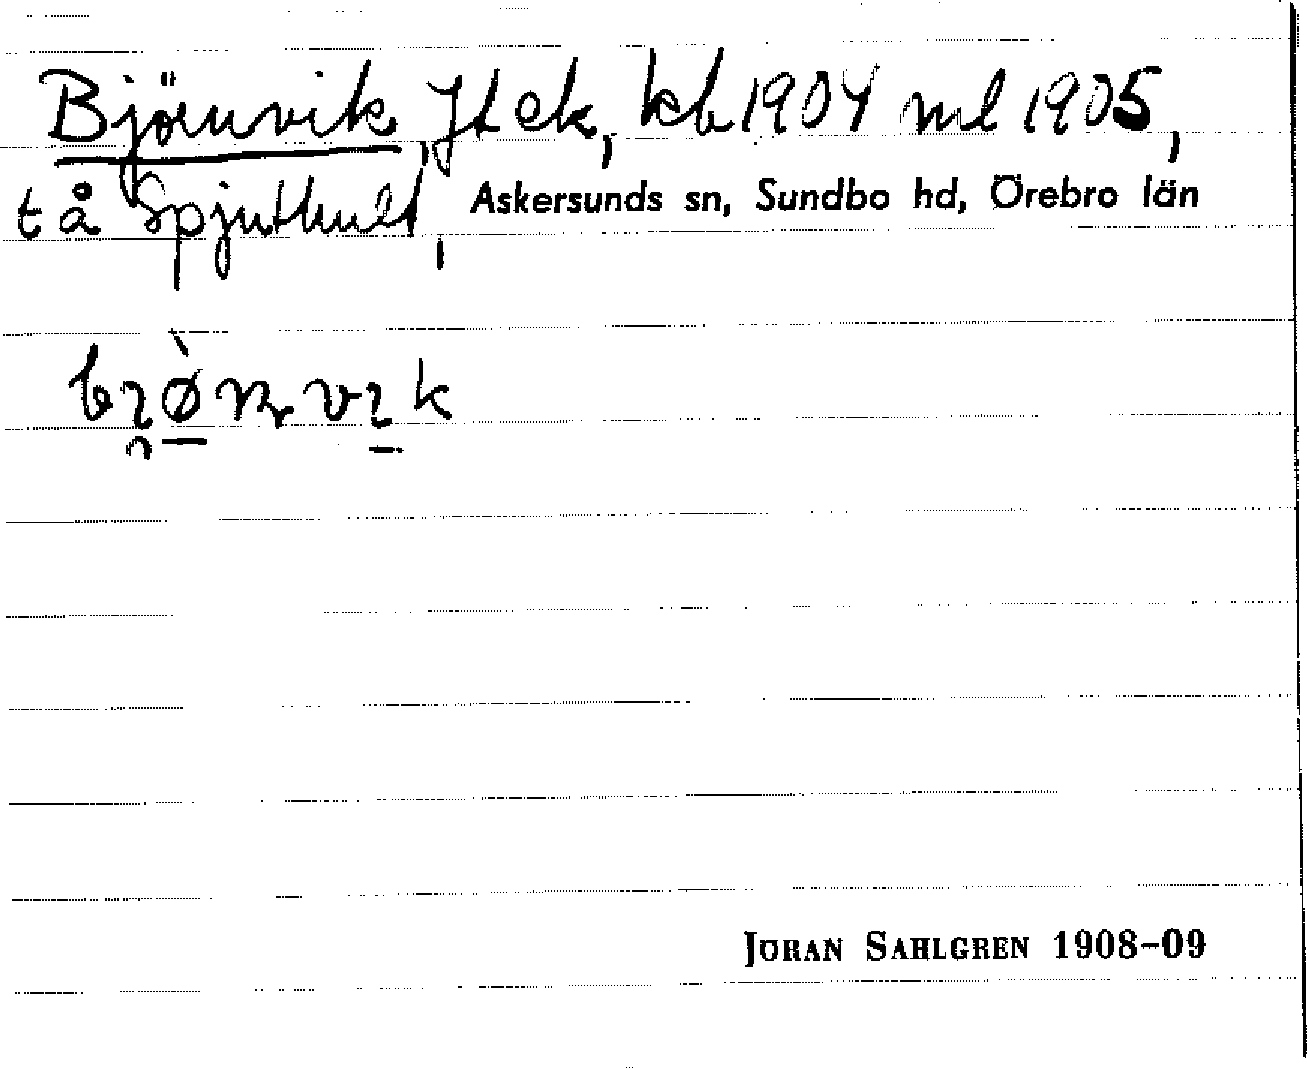 Björnvik, Jt ek, kb 1904 ml 1905,
t å Spjuthult, Askersunds sn, Sundbo hd, Örebro län
JÖRAN SAHLGREN 1908-09